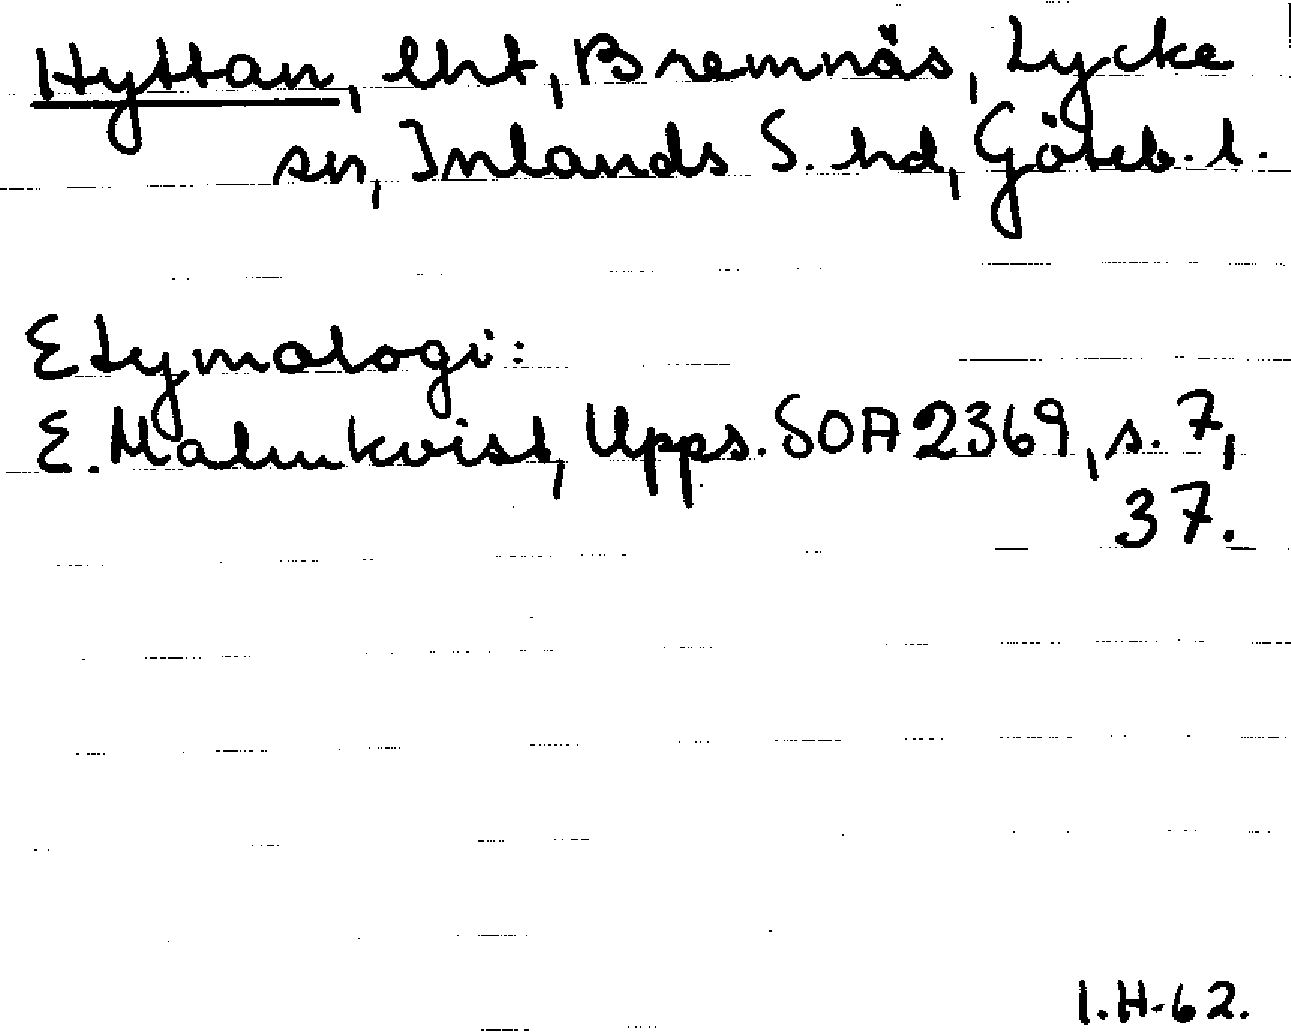 Hyttan, lht, Bremnäs, Lycke
sn, Inlands S. hd, Göteb. l.
Etymologi:
E. Malmkvist, Upps. SOA 2369, s. 7,
37.
I.H-62.